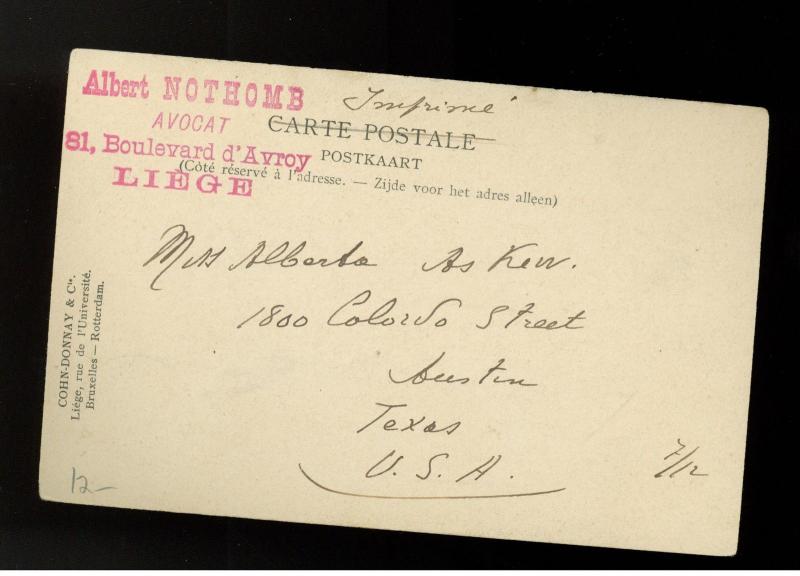 Albert NOTHOMB
AVOCAT
81, Boulevard d'Avroy
LIÉGE
Imprimé
CARTE POSTALE
POSTKAART
(Côté réservé à l'adresse. — Zijde voor het adres alleen)
COHN-DONNAY & Cie.
Liége, rue de l'Université.
Bruxelles — Rotterdam.
Miss Alberta Askew.
1800 Colordo Street
Austin
Texas
U. S. A.
7/12
12-